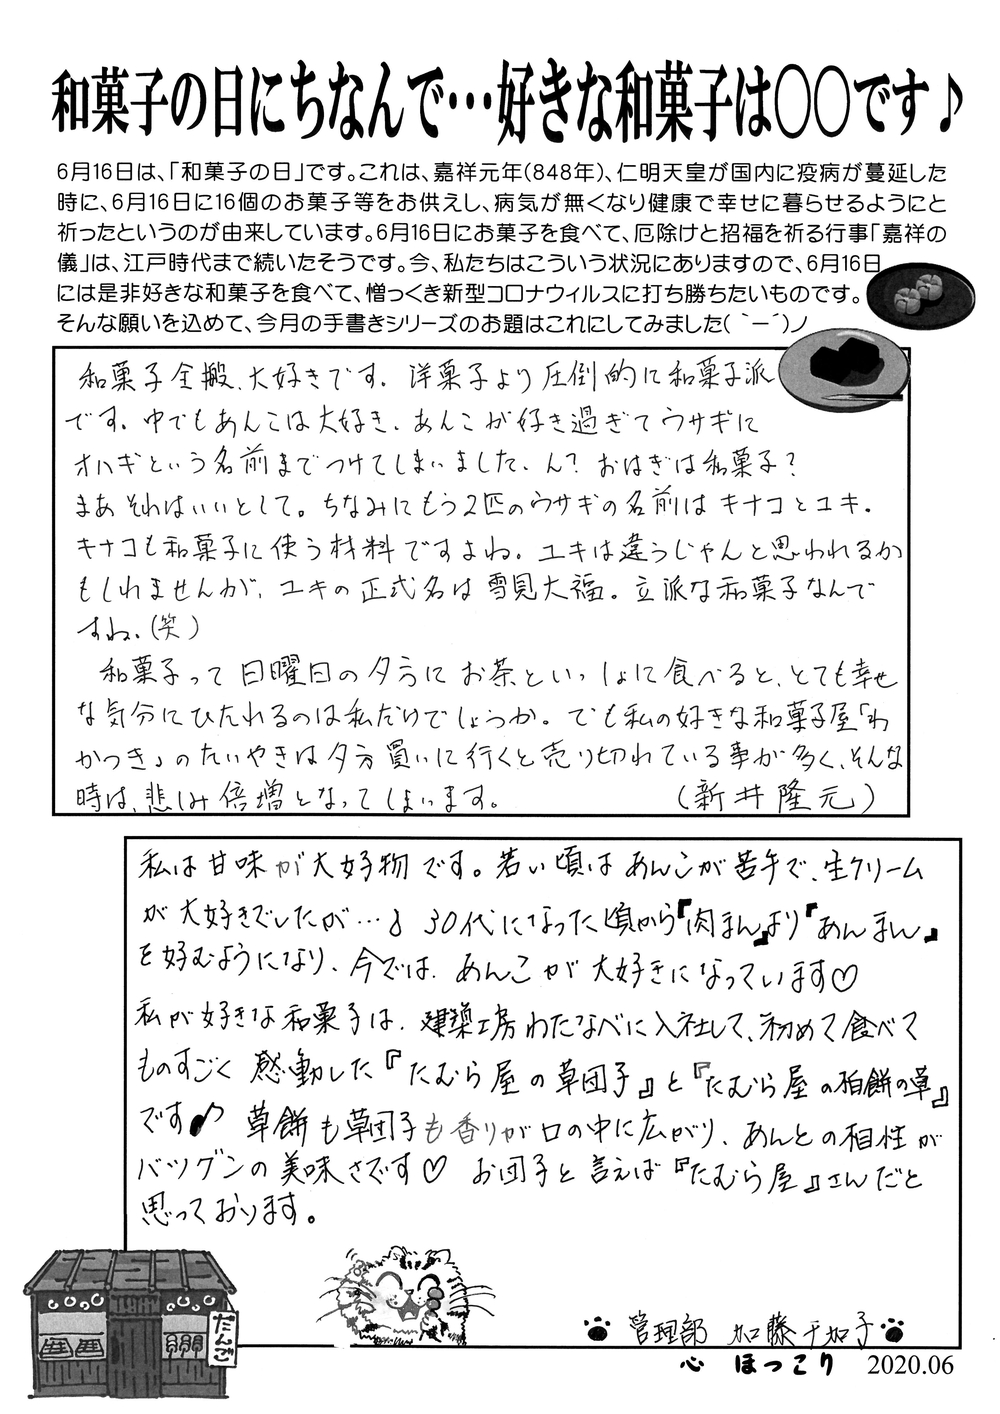 和菓子の日にちなんで…好きな和菓子は〇〇です♪
6月16日は、「和菓子の日」です。これは、嘉祥元年(848年)、仁明天皇が国内に疫病が蔓延した
時に、6月16日に16個のお菓子等をお供えし、病気が無くなり健康で幸せに暮らせるようにと
祈ったというのが由来しています。6月16日にお菓子を食べて、厄除けと招福を祈る行事「嘉祥の
儀」は、江戸時代まで続いたそうです。今、私たちはこういう状況にありますので、6月16日
には是非好きな和菓子を食べて、憎っくき新型コロナウィルスに打ち勝ちたいものです。
そんな願いを込めて、今月の手書きシリーズのお題はこれにしてみました(｀ー´)ノ
和菓子全搬、大好きです。洋菓子より圧倒的に和菓子派
です。中でもあんこは大好き、あんこが好き過ぎてウサギに
オハギという名前までつけてしまいました、ん?おはぎは和菓子?
まあそれはいいとして。ちなみにもう2匹のウサギの名前はキナコとユキ.
キナコも和菓子に使う材料ですよね。ユキは違うじゃんと思われるか
もしれませんが、ユキの正式名は雪見大福。立派な和菓子なんで
すね、(笑)
和菓子って日曜日の夕方にお茶といっしょに食べると、とても幸せ
な気分にひたれるのは私だけでしょうか。でも私の好きな和菓子屋「わ
かつき」のたいやきは夕方買いに行くと売り切れている事が多く、そんな
時は、悲しみ倍増となってしまいます。　(新井隆元)
私は甘味が大好物です。若い頃はあんこが苦手で、生クリーム
が大好きでしたが…♪ 30代になった頃から『肉まん』より『あんまん』
を好むようになり、今では、あんこが大好きになっています♡
私が好きな和菓子は、建築工房わたなべに入社して、初めて食べて
ものすごく感動した『たむら屋の草団子』と『たむら屋の柏餅の草』
です♪ 草餅も草団子も香りが口の中に広がり、あんとの相性が
バツグンの美味さです♡ お団子と言えば『たむら屋』さんだと
思っております。
だんご
管理部 加藤千加子
心 ほっこり 2020.06